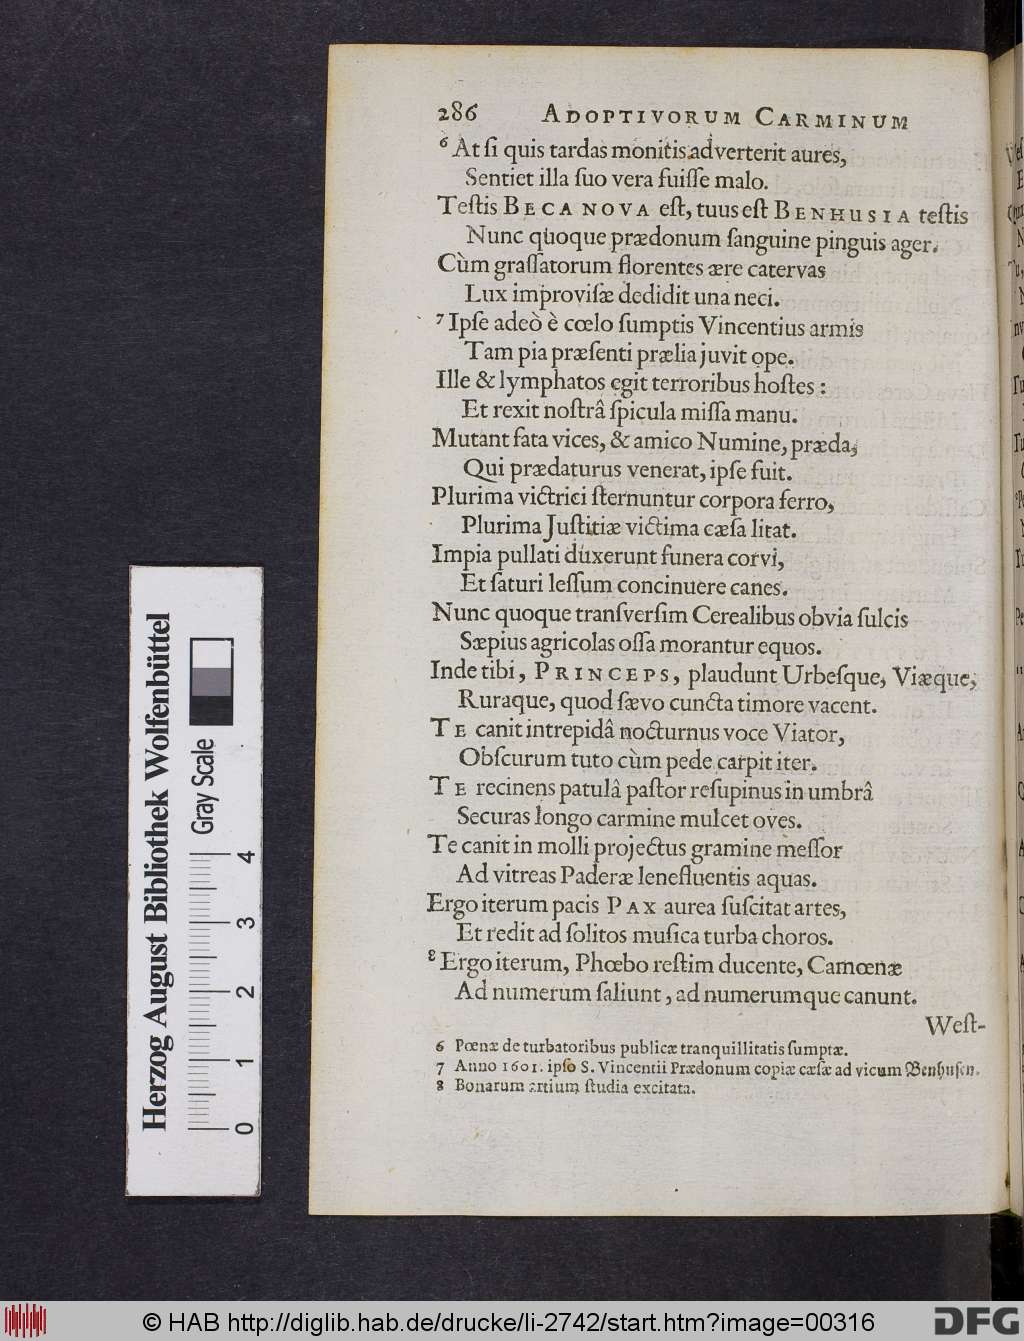 286 ADOPTIVORUM CARMINUM
⁶ At ſi quis tardas monitis adverterit aures,
Sentiet illa ſuo vera fuiſſe malo.
Teſtis BECA NOVA eſt, tuus eſt BENHUSIA teſtis
Nunc quoque prædonum ſanguine pinguis ager.
Cùm graſſatorum florentes ære catervas
Lux improviſæ dedidit una neci.
⁷ Ipſe adeò è cœlo ſumptis Vincentius armis
Tam pia præſenti prælia juvit ope.
Ille & lymphatos egit terroribus hoſtes :
Et rexit noſtrâ ſpicula miſſa manu.
Mutant fata vices, & amico Numine, præda,
Qui prædaturus venerat, ipſe fuit.
Plurima victrici ſternuntur corpora ferro,
Plurima Juſtitiæ victima cæſa litat.
Impia pullati duxerunt funera corvi,
Et ſaturi leſſum concinuere canes.
Nunc quoque tranſverſim Cerealibus obvia ſulcis
Sæpius agricolas oſſa morantur equos.
Inde tibi, PRINCEPS, plaudunt Urbeſque, Viæque,
Ruraque, quod ſævo cuncta timore vacent.
TE canit intrepidâ nocturnus voce Viator,
Obſcurum tuto cùm pede carpit iter.
TE recinens patulâ paſtor reſupinus in umbrâ
Securas longo carmine mulcet oves.
Te canit in molli projectus gramine meſſor
Ad vitreas Paderæ lenefluentis aquas.
Ergo iterum pacis PAX aurea ſuſcitat artes,
Et redit ad ſolitos muſica turba choros.
⁸ Ergo iterum, Phœbo reſtim ducente, Camœnæ
Ad numerum ſaliunt, ad numerumque canunt.
Weſt-
6 Pœnæ de turbatoribus publicæ tranquillitatis ſumptæ.
7 Anno 1601. ipſo S. Vincentii Prædonum copiæ cæſæ ad vicum Benhuſen.
8 Bonarum artium ſtudia excitata.
Herzog August Bibliothek Wolfenbüttel
Gray Scale
0 1 2 3 4
© HAB http://diglib.hab.de/drucke/li-2742/start.htm?image=00316
DFG